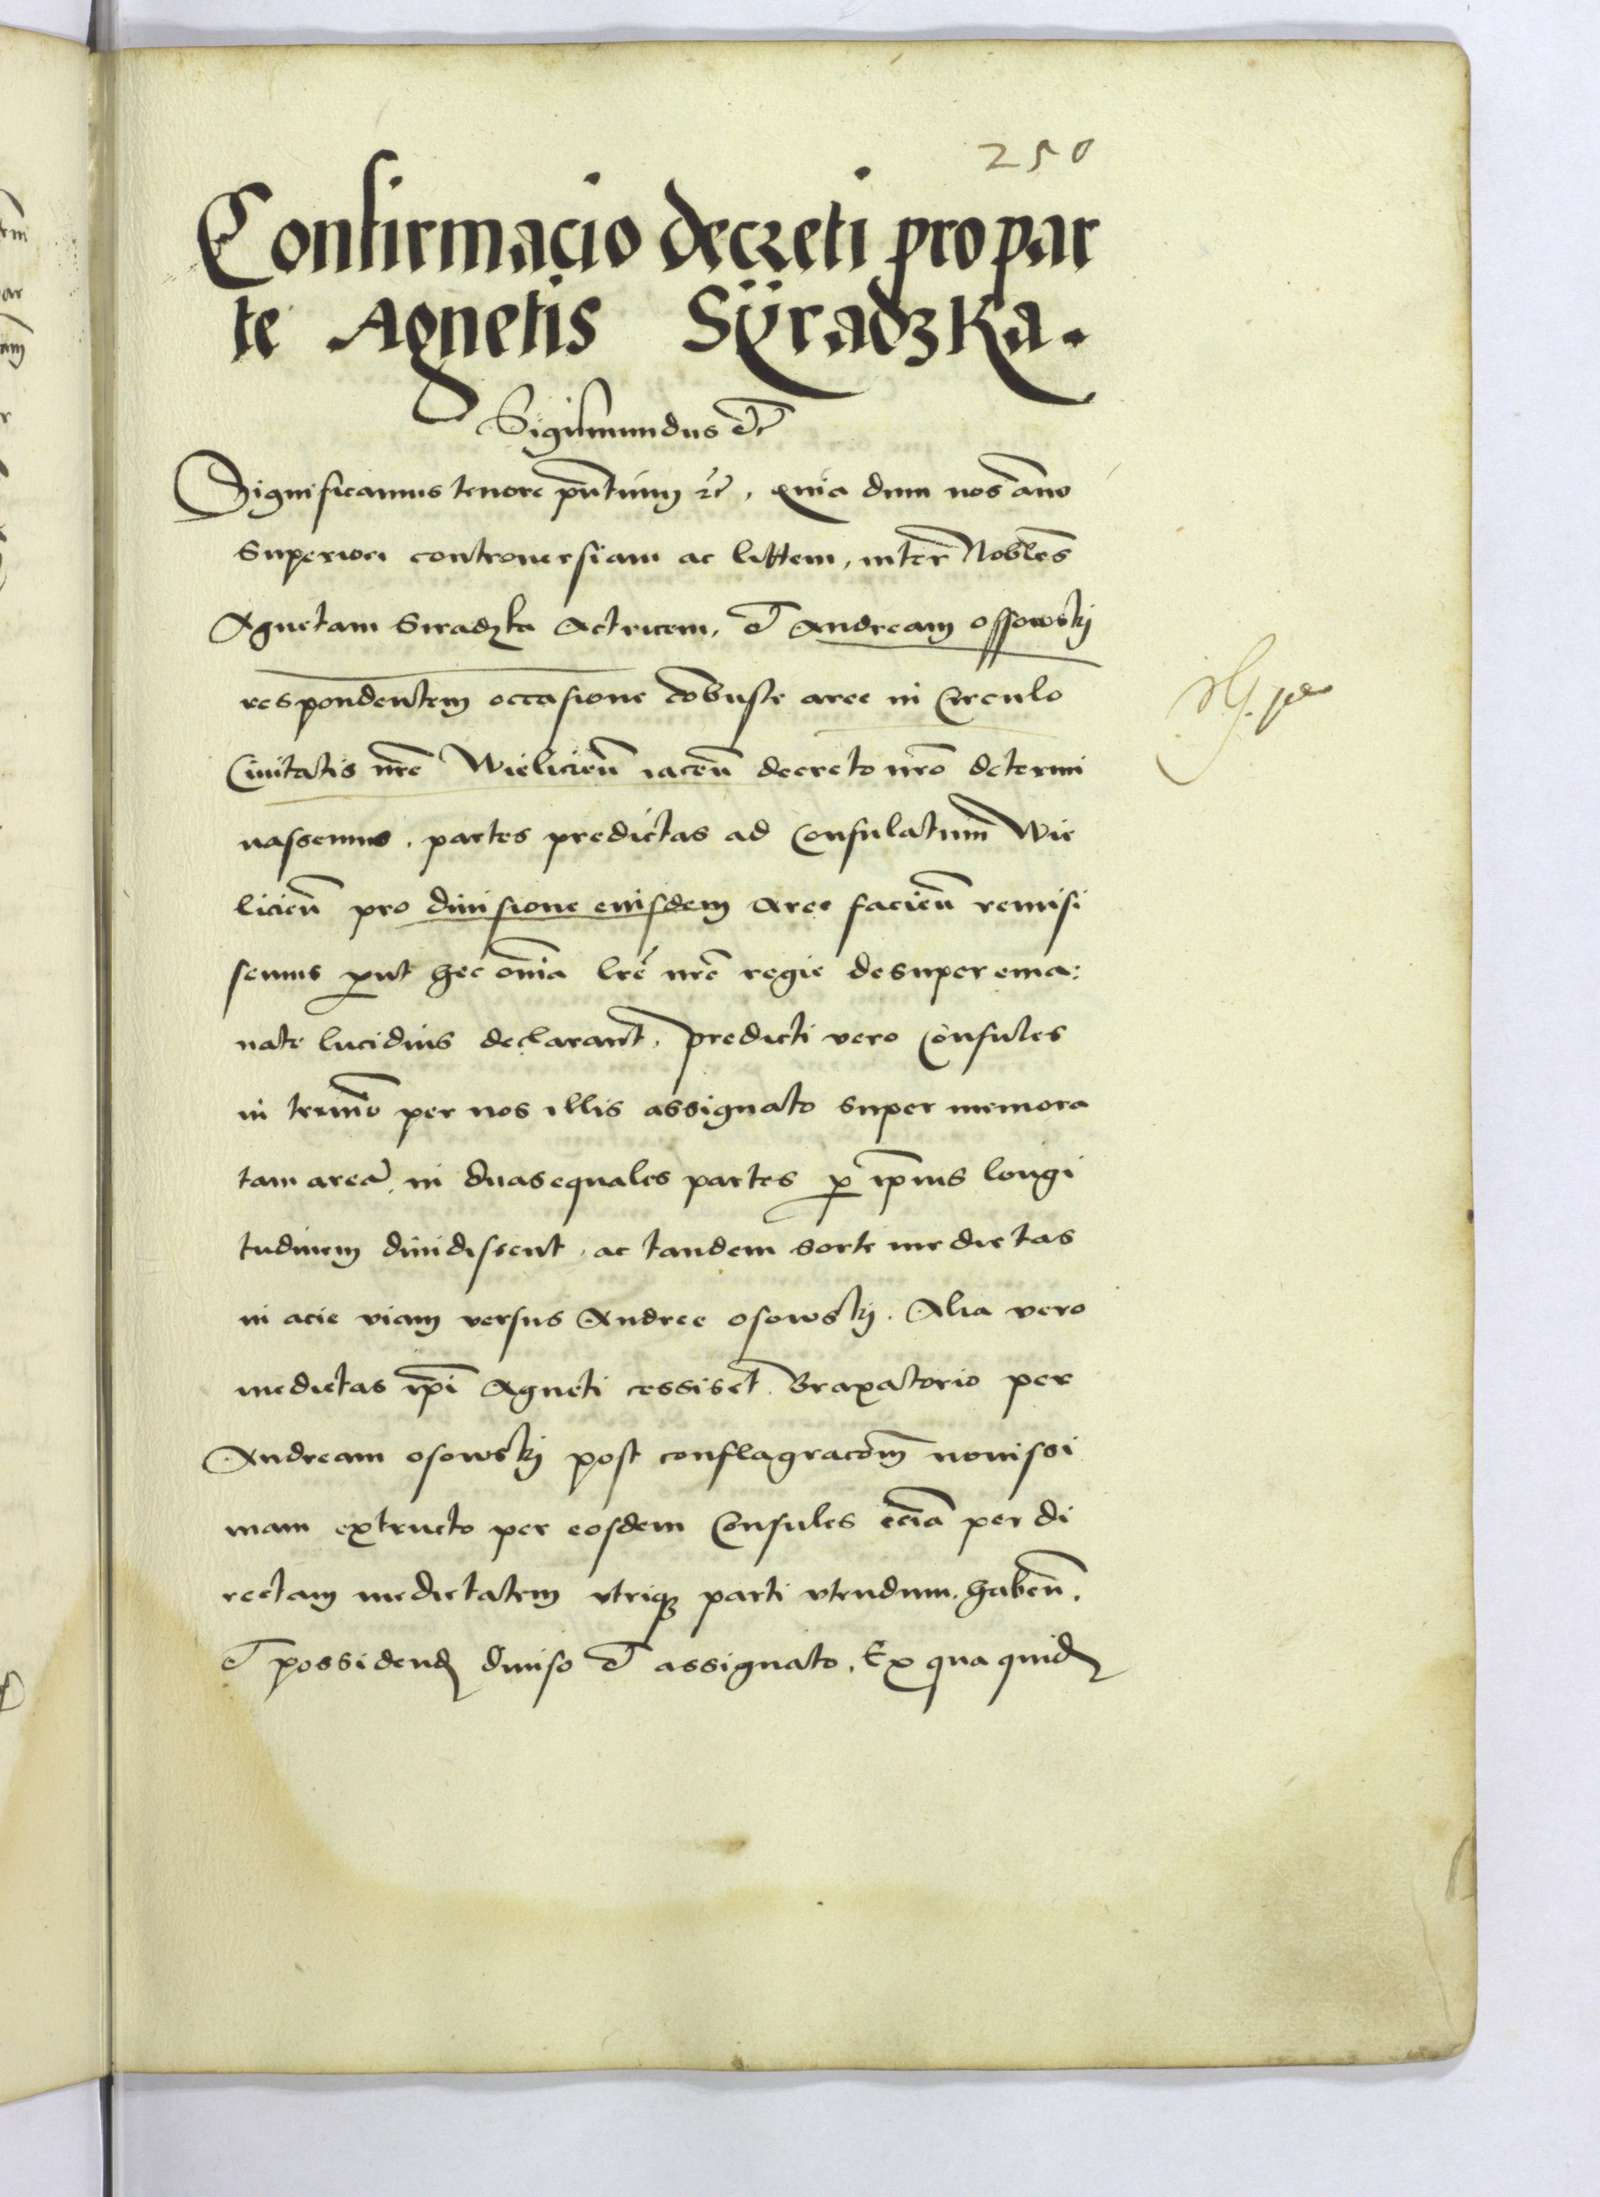 250
Confirmacio decreti pro par
te Agnetis Sÿradzka.
Sigismundus etc
Significamus tenore pntium etc, quia dum nos anno
superiori controuersiam ac littem, inter Nobiles
Agnetam Siradzka Actricem, et Andream Ossowskj
respondentem occasione combuste aree in Circulo
Ciuitatis nre Wielicien iacen decreto nro determi
nassemus, partes predictas ad Consulatum Wie
licien pro diuisione euisdem Aree facien remisi
semus prout hec omnia lre nre regie desuper ema:
nate lucidius declarant, predicti vero Consules
in termino per nos illis assignato super memora
tam aream in duas equales partes per ipsius longi
tudinem diuidissent, ac tandem sorte medietas
in acie viam versus Andree Osowskj. Alia vero
medietas ipsi Agneti cessisset. Braxatorio per
Andream Osowskj post conflagracom nouissi
mam extructo per eosdem Consules eciam per di
rectam medietatem vtrique parti vtendum, haben,
et possidend diuiso et assignato, Ex qua quid